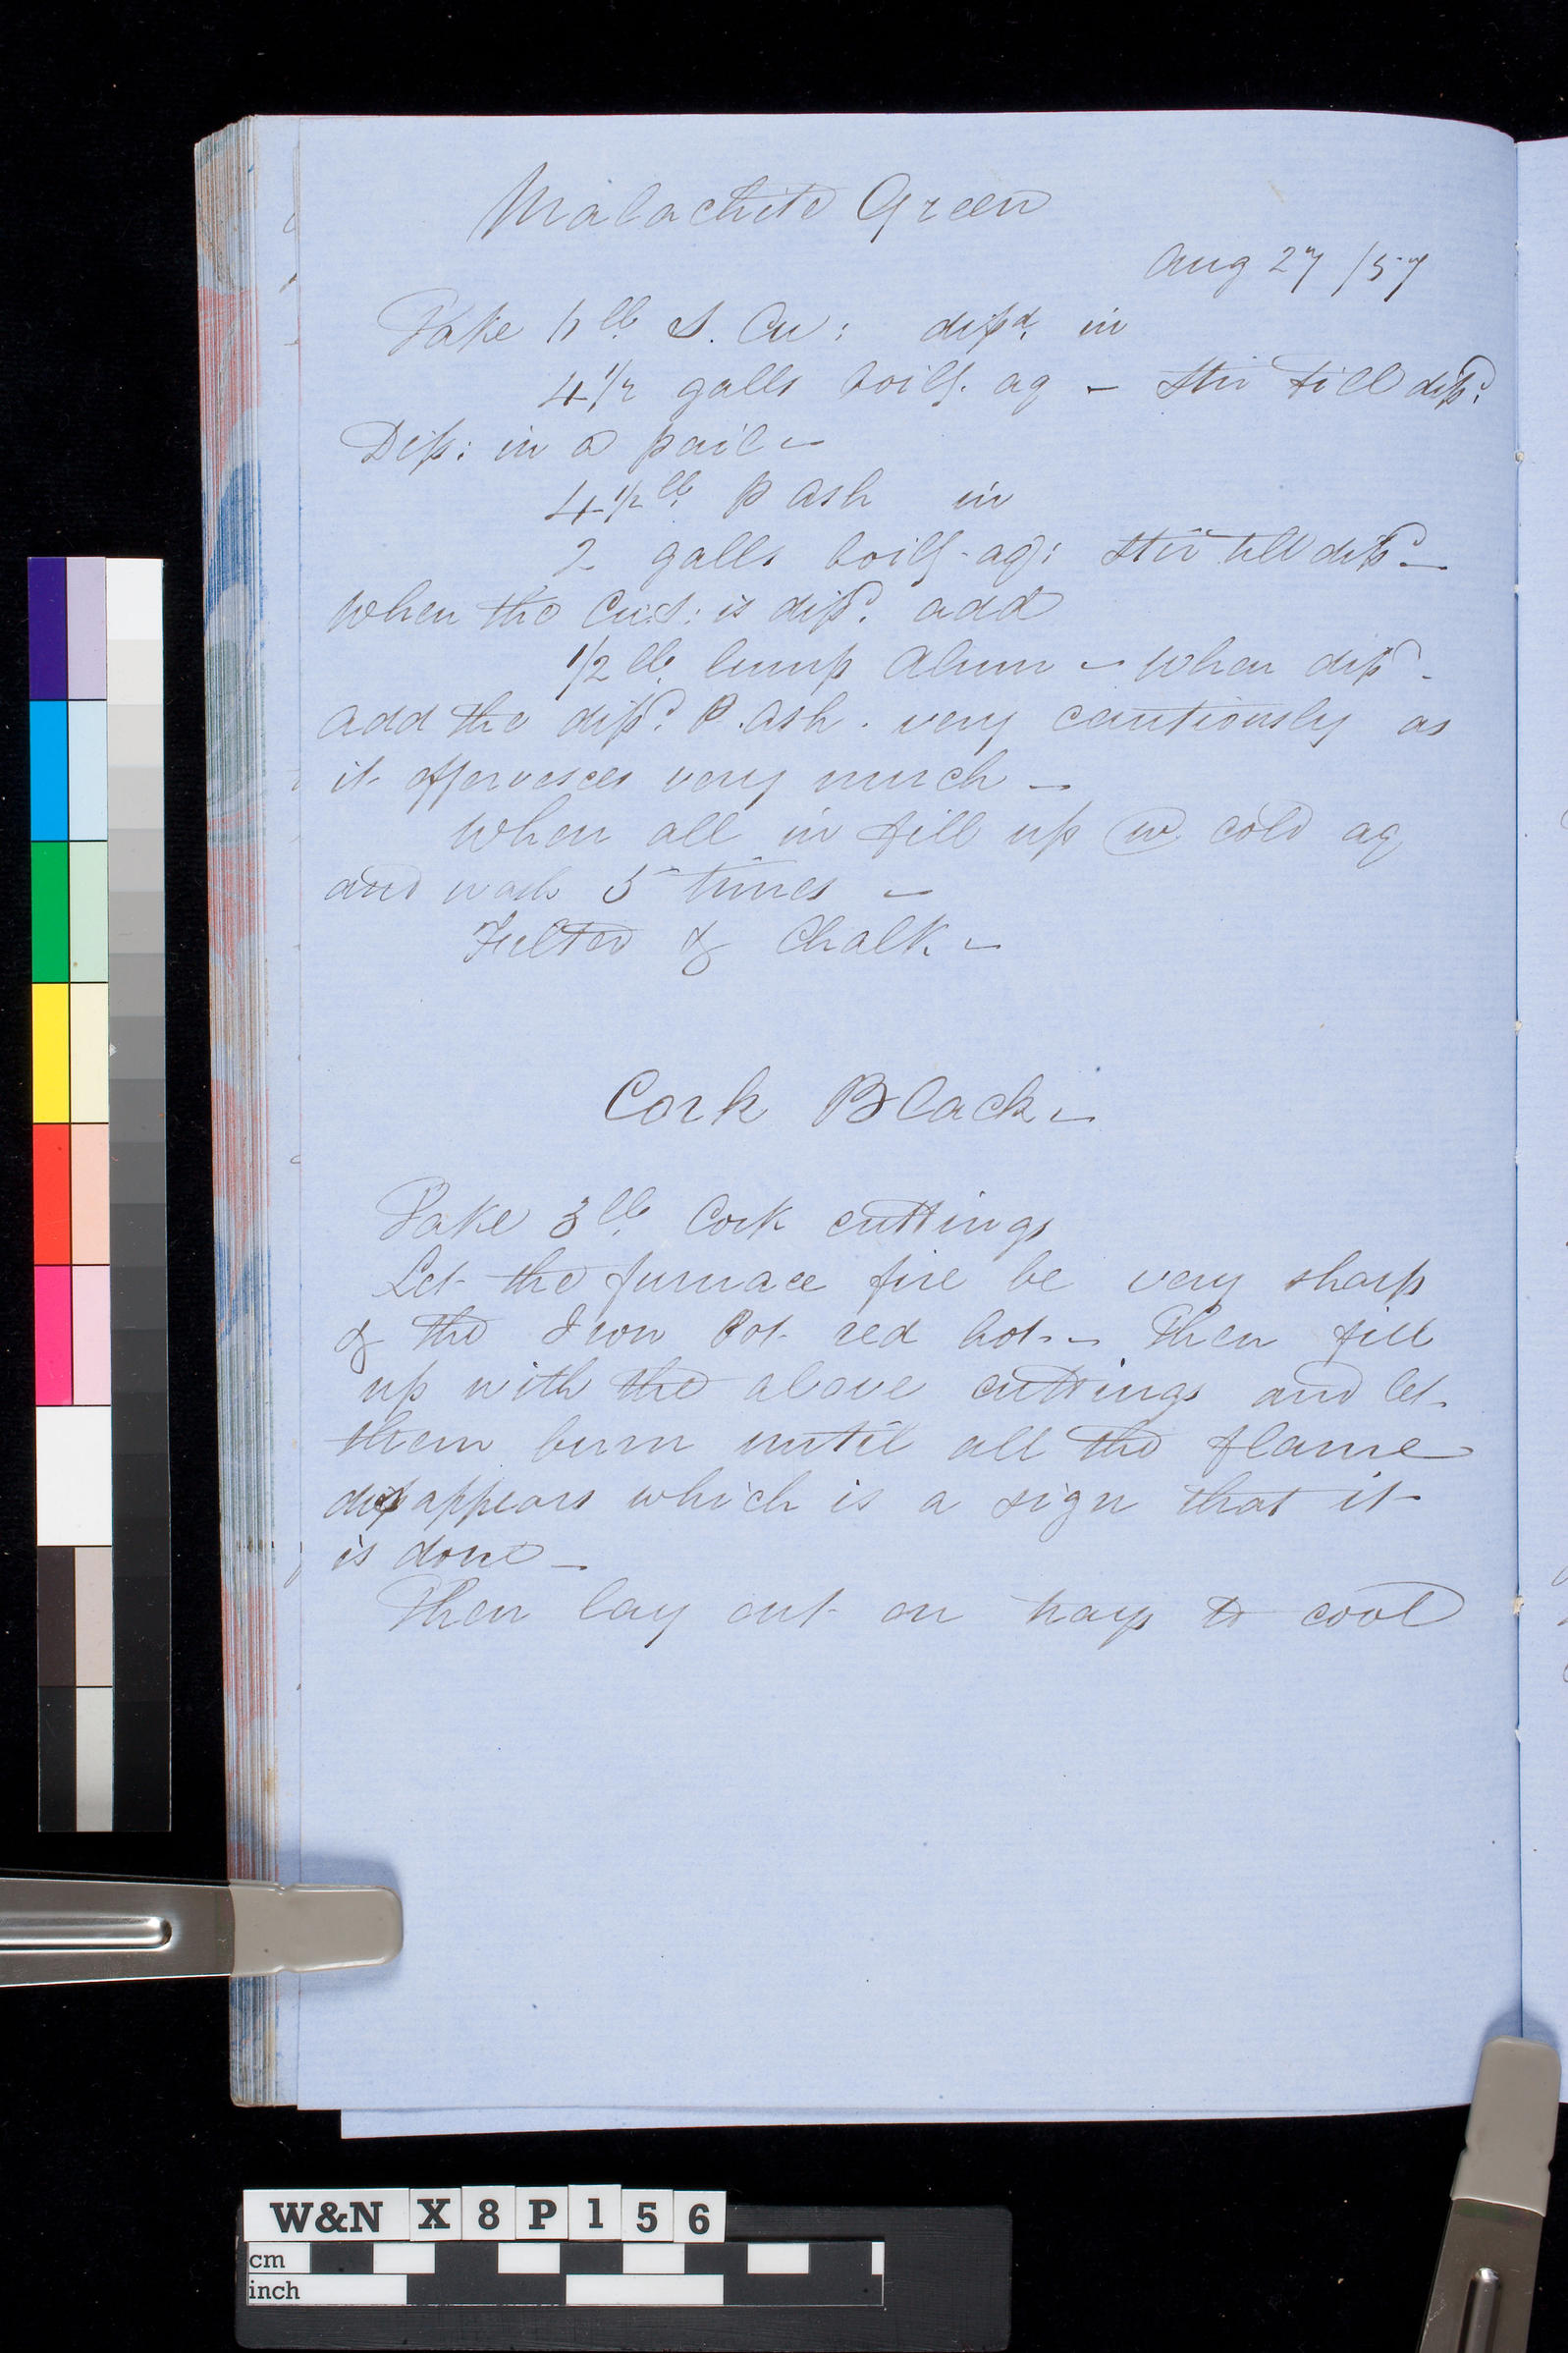 Malachite Green
Aug 27 /57
Take
lb S. Cu: dissd. in
4 1/2 galls boilg. aq - Stir till dissd.
Diss: in a pail -
4 1/2 lb. P Ash in
2 galls boilg - aq: Stir till dissd -
When the Cu.S: is dissd. add
1/2 lb. lump Alum - When dissd -
add the dissd. P. Ash. very cautiously as
it effervesces very much -
When all in fill up w. cold aq
and wash 5 times -
Filter & Chalk -
Cork Black -
Take 3 lb. Cork cuttings
Let the furnace fire be very sharp
& the Iron Pot red hot - Then fill
up with the above cuttings and let
them burn until all the flame
disappears which is a sign that it
is done -
Then lay out on trays to cool
W&N X8P156
cm
inch